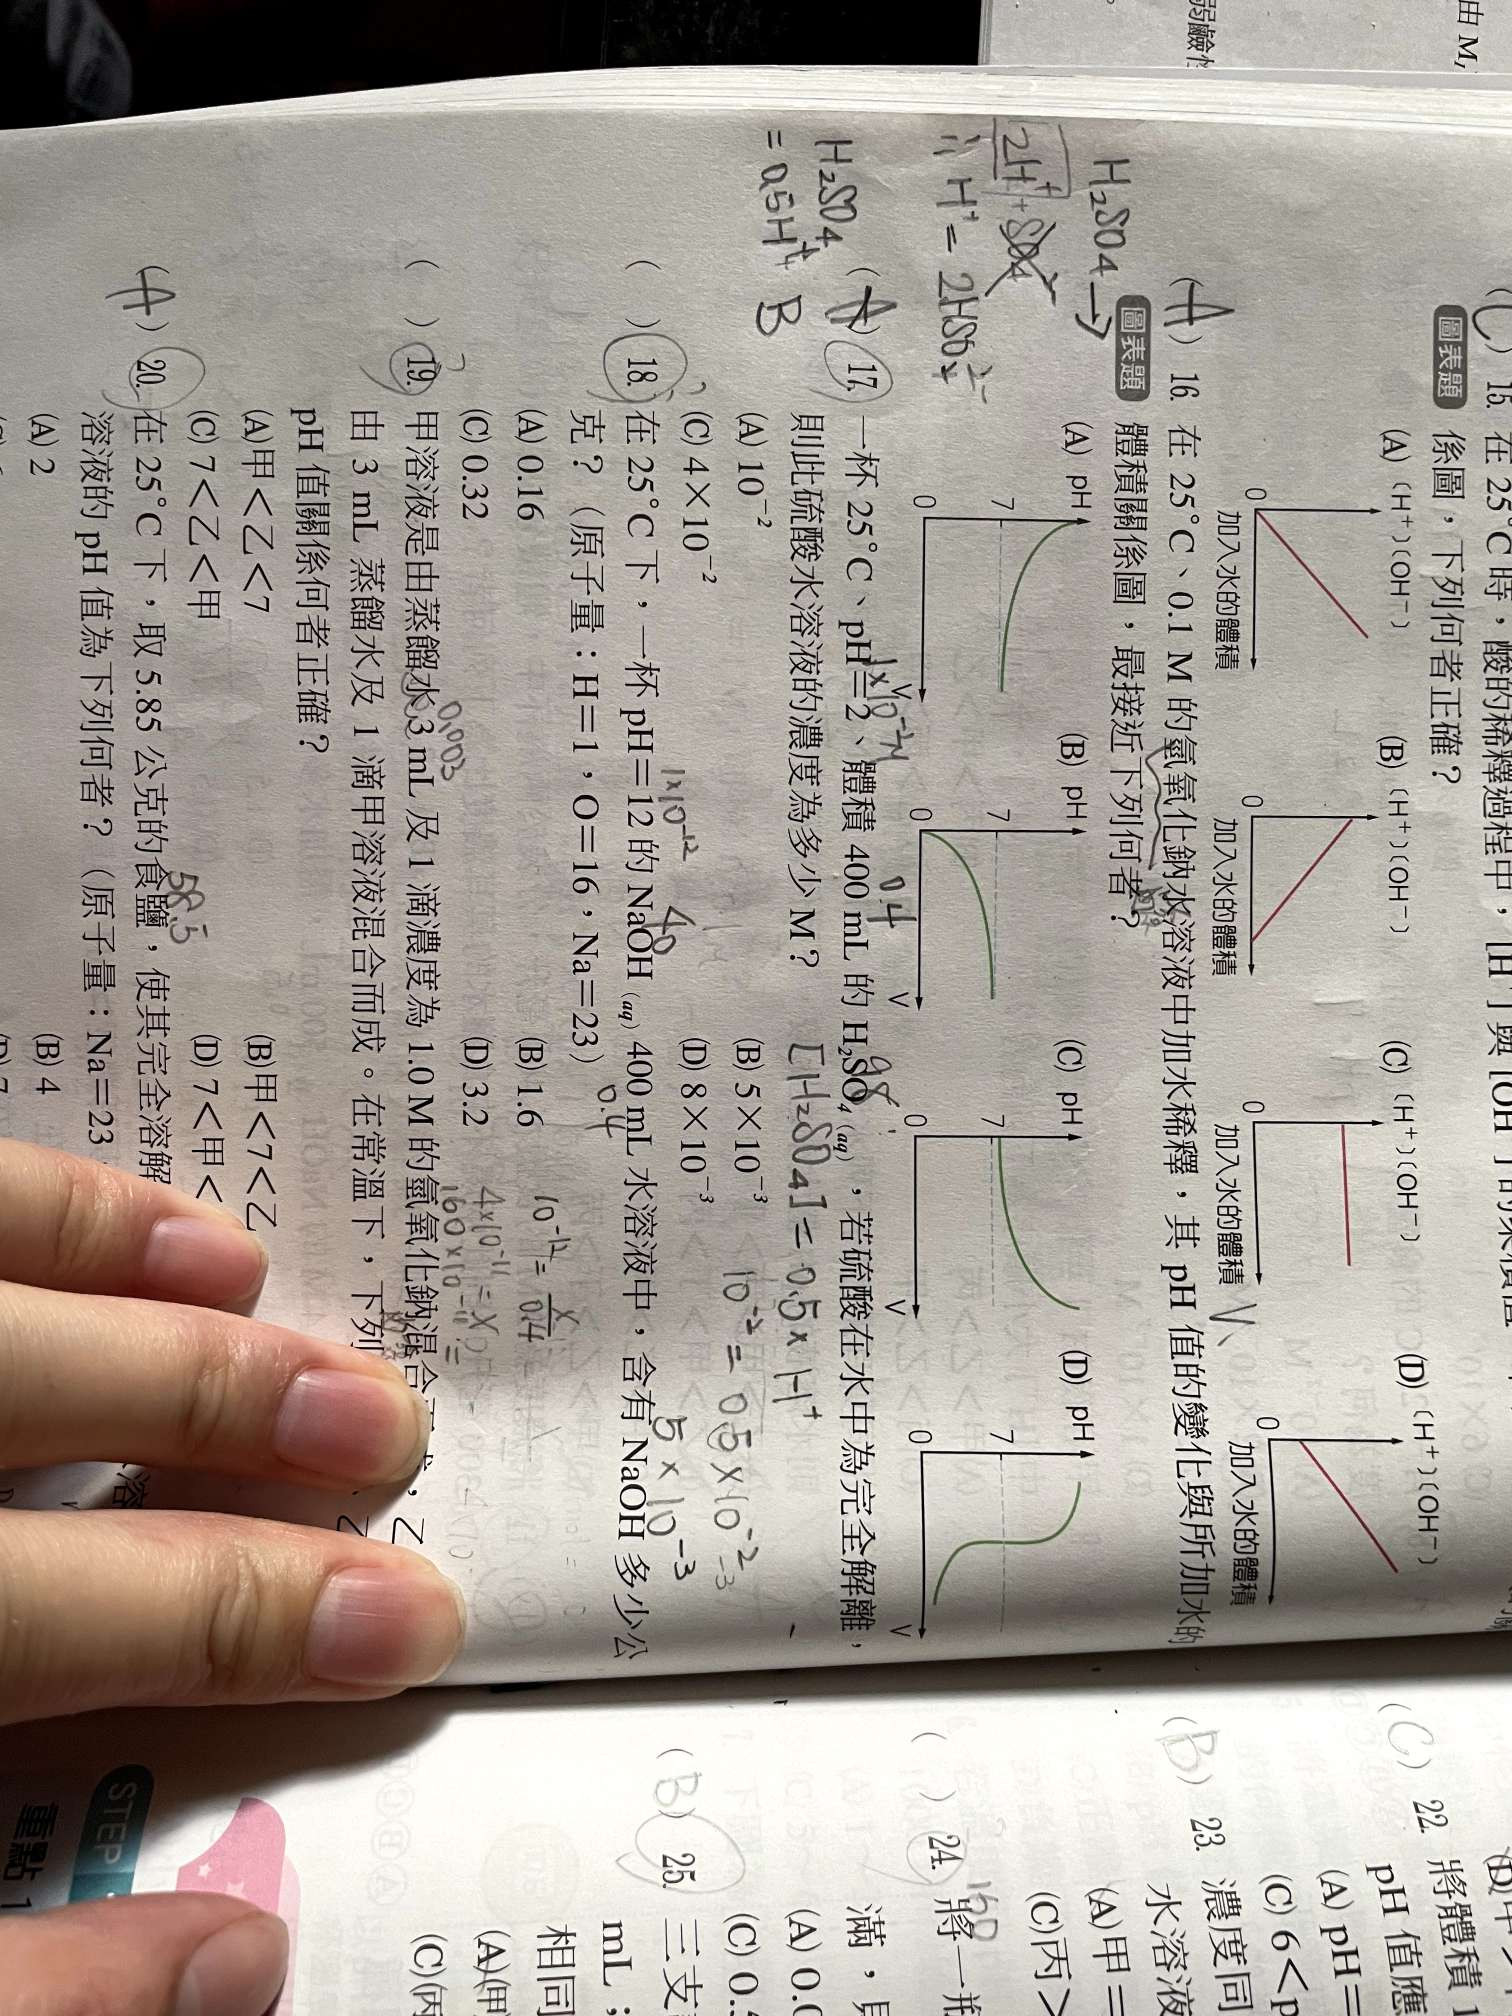 由 M,
弱鹼性
15. 在 25°C 時，酸的稀釋過程中，[H⁺] 與 [OH⁻] 的乘積值
圖表題 係圖，下列何者正確？
(A) [H⁺][OH⁻] (B) [H⁺][OH⁻] (C) [H⁺][OH⁻] (D) [H⁺][OH⁻]
0 0 0 0
加入水的體積 加入水的體積 加入水的體積 加入水的體積
(A) 16. 在 25°C、0.1 M 的氫氧化鈉水溶液中加水稀釋，其 pH 值的變化與所加水的
圖表題 體積關係圖，最接近下列何者？
H₂SO₄→
(A) pH (B) pH (C) pH (D) pH
7 7 7 7
0 0 V 0 V 0 V
1×10⁻² 0.4 98
(A) 17. 一杯 25°C、pH＝2、體積 400 mL 的 H₂SO₄(aq)，若硫酸在水中為完全解離，
則此硫酸水溶液的濃度為多少 M？ [H₂SO₄] = 0.5×H⁺
H₂SO₄
= 0.5H⁺ B
(A) 10⁻² (B) 5×10⁻³ 10⁻² = 0.5×10⁻²
(C) 4×10⁻² (D) 8×10⁻³ 5×10⁻³
1×10⁻¹² 40
( ) 18. 在 25°C 下，一杯 pH＝12 的 NaOH(aq) 400 mL 水溶液中，含有 NaOH 多少公
0.4
克？（原子量：H＝1，O＝16，Na＝23）
(A) 0.16 (B) 1.6 10⁻¹² = x/0.4
(C) 0.32 (D) 3.2
0.003
( ) 19. 甲溶液是由蒸餾水 3 mL 及 1 滴濃度為 1.0 M 的氫氧化鈉混合
由 3 mL 蒸餾水及 1 滴甲溶液混合而成。在常溫下，下列
pH 值關係何者正確？
(A)甲＜乙＜7 (B)甲＜7＜乙
(C) 7＜乙＜甲 (D) 7＜甲＜
58.5
(A) 20. 在 25°C 下，取 5.85 公克的食鹽，使其完全溶解
溶液的 pH 值為下列何者？（原子量：Na＝23
(A) 2 (B) 4
(C) 22. 將體積
pH 值應
(A) pH＝
(C) 6＜p
(B) 23. 濃度同
水溶液
(A)甲＝
(C)丙＞
( ) 24. 將一瓶
滿，
(A) 0.0
(C) 0.
(B) 25. 三支
mL；
相同
(A)(甲
(C)(丙
STEP
重點 1